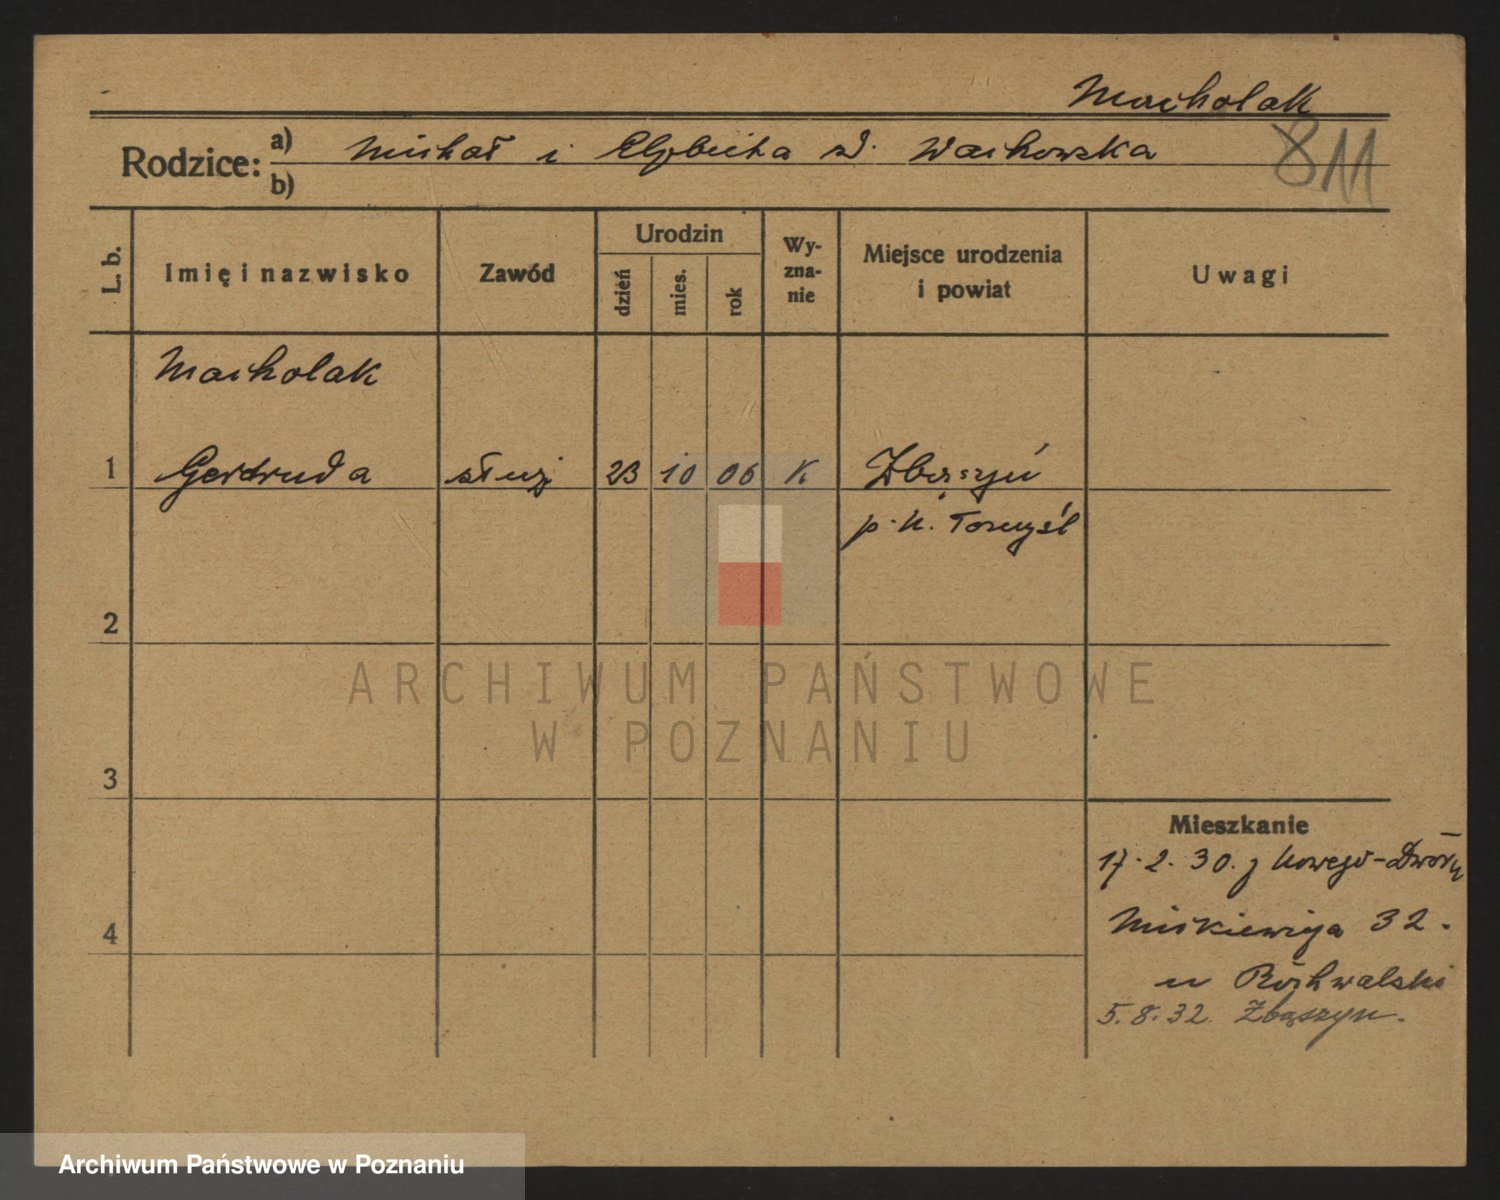 Macholak
Rodzice: a) Michał i Elżbieta d. Wachowska
b)
811
L. b. Imię i nazwisko Zawód Urodzin dzień mies. rok Wyznanie Miejsce urodzenia i powiat Uwagi
Macholak
1 Gertruda służ 23 10 06 K Zbąszyń
p. N. Tomyśl
2
ARCHIWUM PAŃSTWOWE
W POZNANIU
3
Mieszkanie
17. 2. 30. z Nowego-Dworu
4
Mickiewicza 32.
u
5. 8. 32. Zbąszyn.
Archiwum Państwowe w Poznaniu